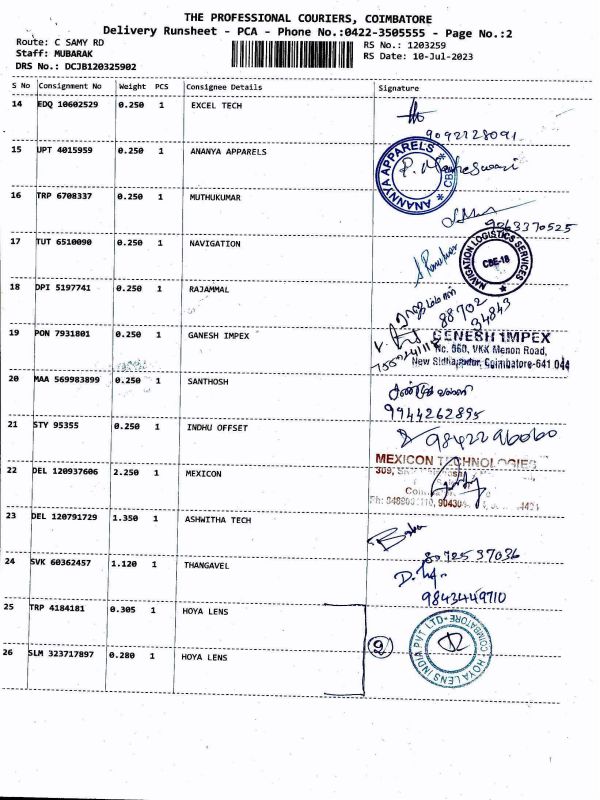 THE PROFESSIONAL COURIERS, COIMBATORE
Delivery Runsheet - PCA - Phone No.:0422-3505555 - Page No.:2
Route: C SAMY RD
RS No.: 1203259
Staff: MUBARAK
RS Date: 10-Jul-2023
DRS No.: DCJB120325902
S No Consignment No Weight PCS Consignee Details Signature
14 EDQ 10602529 0.250 1 EXCEL TECH
9092128091
15 UPT 4015959 0.250 1 ANANYA APPARELS
ANANNYA APPARELS CBE
16 TRP 6708337 0.250 1 MUTHUKUMAR
9363370525
17 TUT 6510090 0.250 1 NAVIGATION
NAVIGATION LOGISTICS SERVICES
CBE-18
18 DPI 5197741 0.250 1 RAJAMMAL
88702
34843
19 PON 7931801 0.250 1 GANESH IMPEX
GENESH IMPEX
No. 560, VKK Menon Road,
New Sidhapudur, Coimbatore-641 044
20 MAA 569983899 0.250 1 SANTHOSH
9944262895
21 STY 95355 0.250 1 INDHU OFFSET
9842296060
22 DEL 120937606 2.250 1 MEXICON
MEXICON TECHNOLOGIES
309,
23 DEL 120791729 1.350 1 ASHWITHA TECH
Babu
8072537036
24 SVK 60362457 1.120 1 THANGAVEL
9843449710
25 TRP 4184181 0.305 1 HOYA LENS
HOYA LENS INDIA PVT LTD COIMBATORE
26 SLM 323717897 0.280 1 HOYA LENS
2